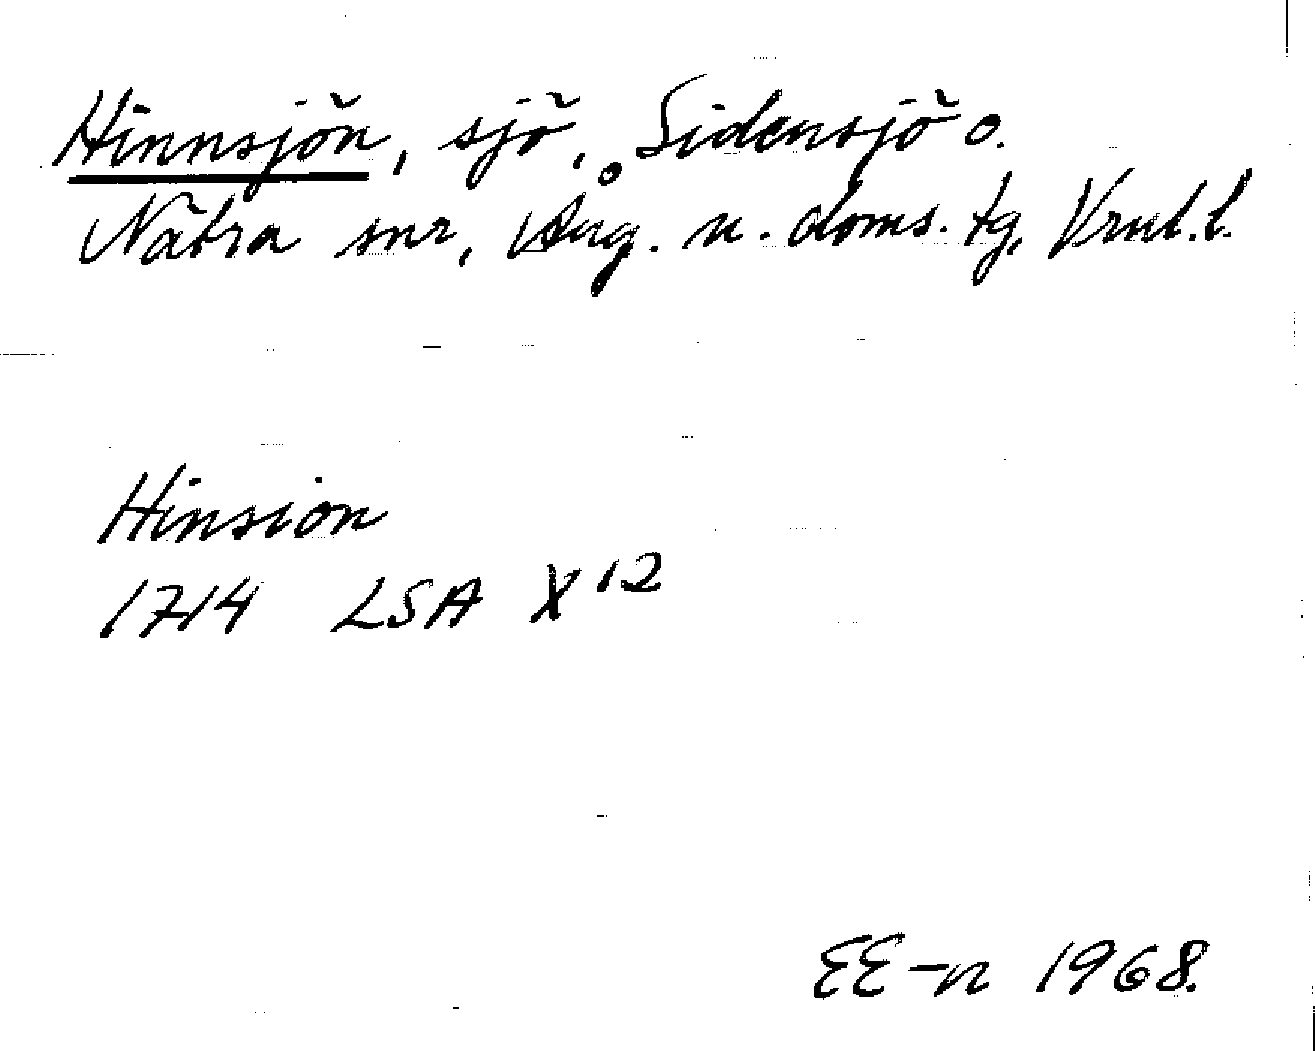 Hinnsjön, sjö, Sidensjö o.
Nätra snr, Ång. n. doms. tg, Vrnl.l.
Hinsiön
1714 LSA X 12
EE-n 1968.